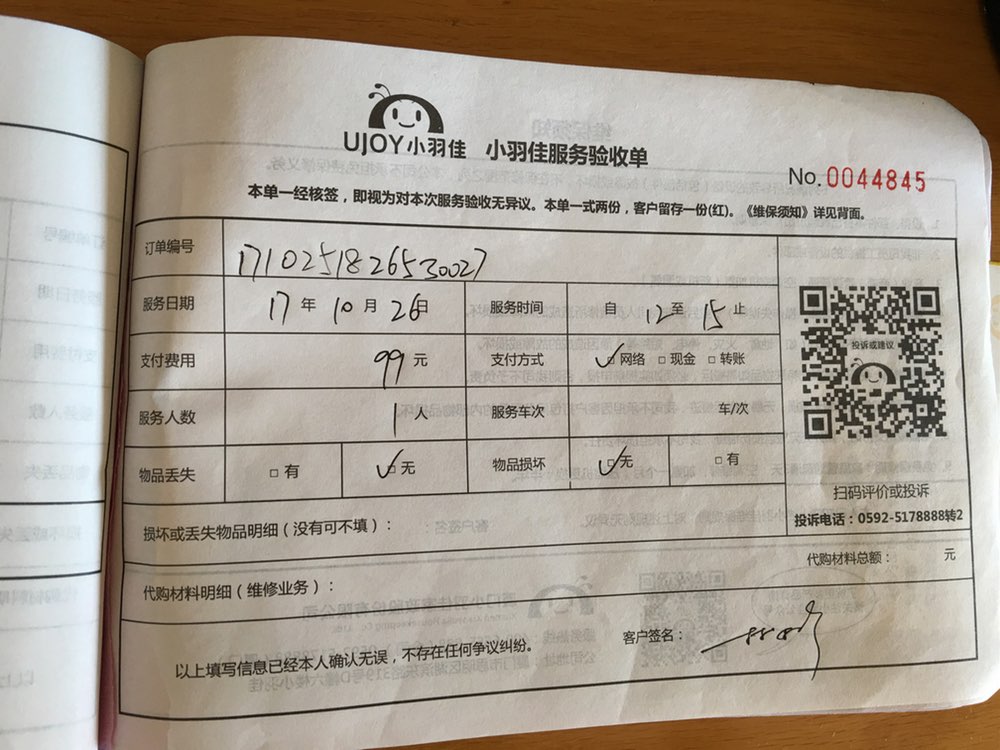 UJOY小羽佳 小羽佳服务验收单
No.0044845
本单一经核签，即视为对本次服务验收无异议。本单一式两份，客户留存一份(红)。《维保须知》详见背面。
订单编号 1710251826530027
服务日期 17年10月26日 服务时间 自12至15止
支付费用 99元 支付方式 ✓□网络 □现金 □转账
服务人数 1人 服务车次 车/次
物品丢失 □有 ✓□无 物品损坏 ✓□无 □有
投诉或建议
扫码评价或投诉
投诉电话：0592-5178888转2
损坏或丢失物品明细（没有可不填）：
代购材料总额： 元
代购材料明细（维修业务）：
客户签名：
以上填写信息已经本人确认无误，不存在任何争议纠纷。